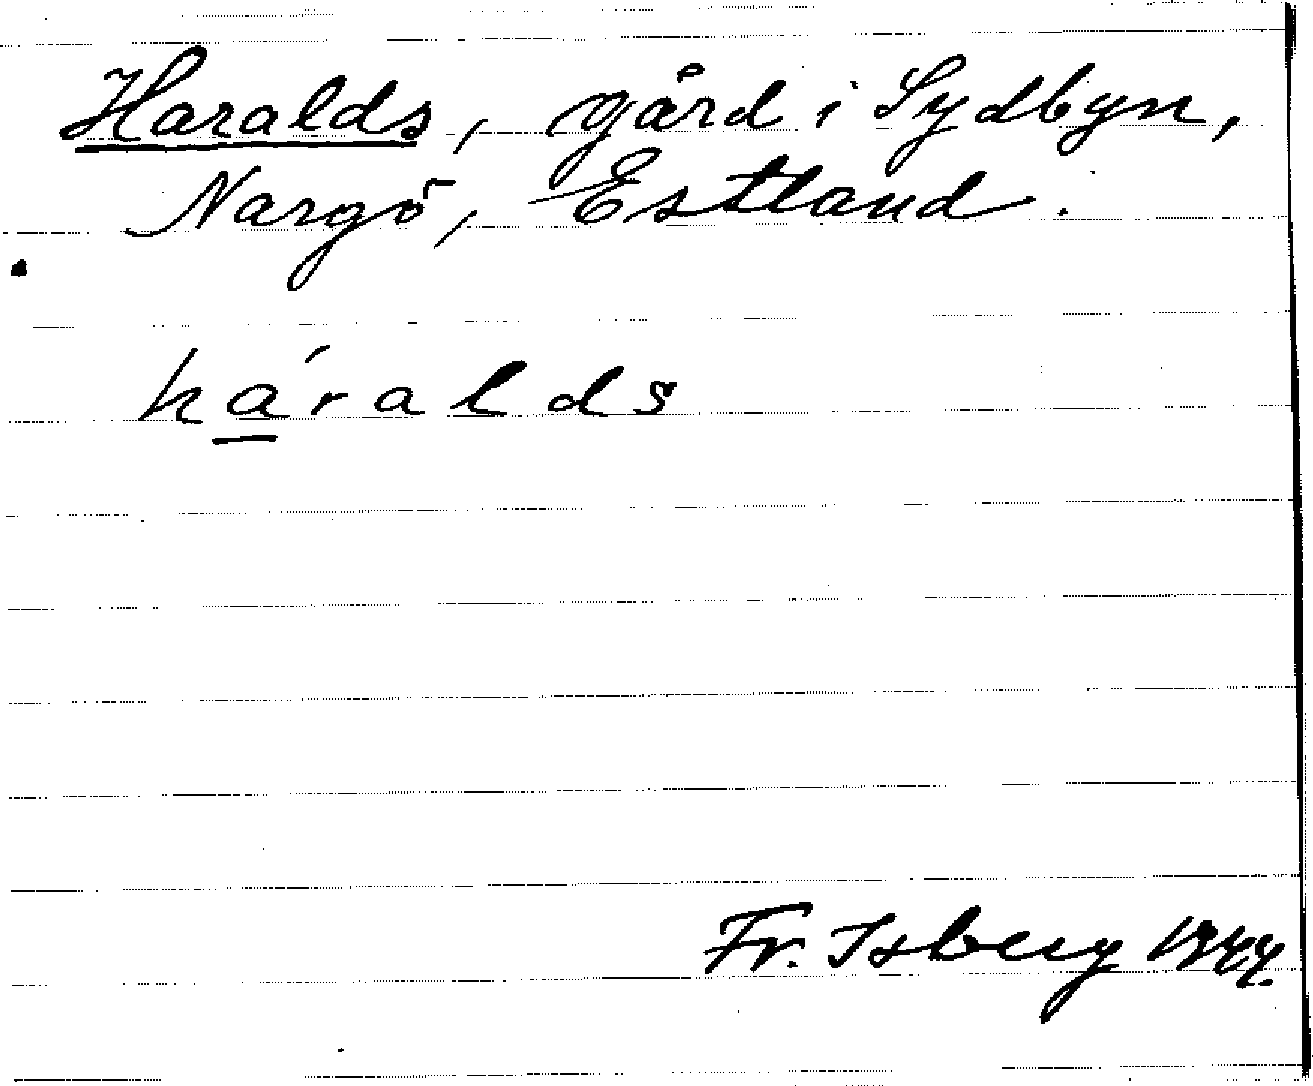 Haralds, gård i Sydbyn,
Nargö, Estland.
háralds
Fr. Isberg 1944.